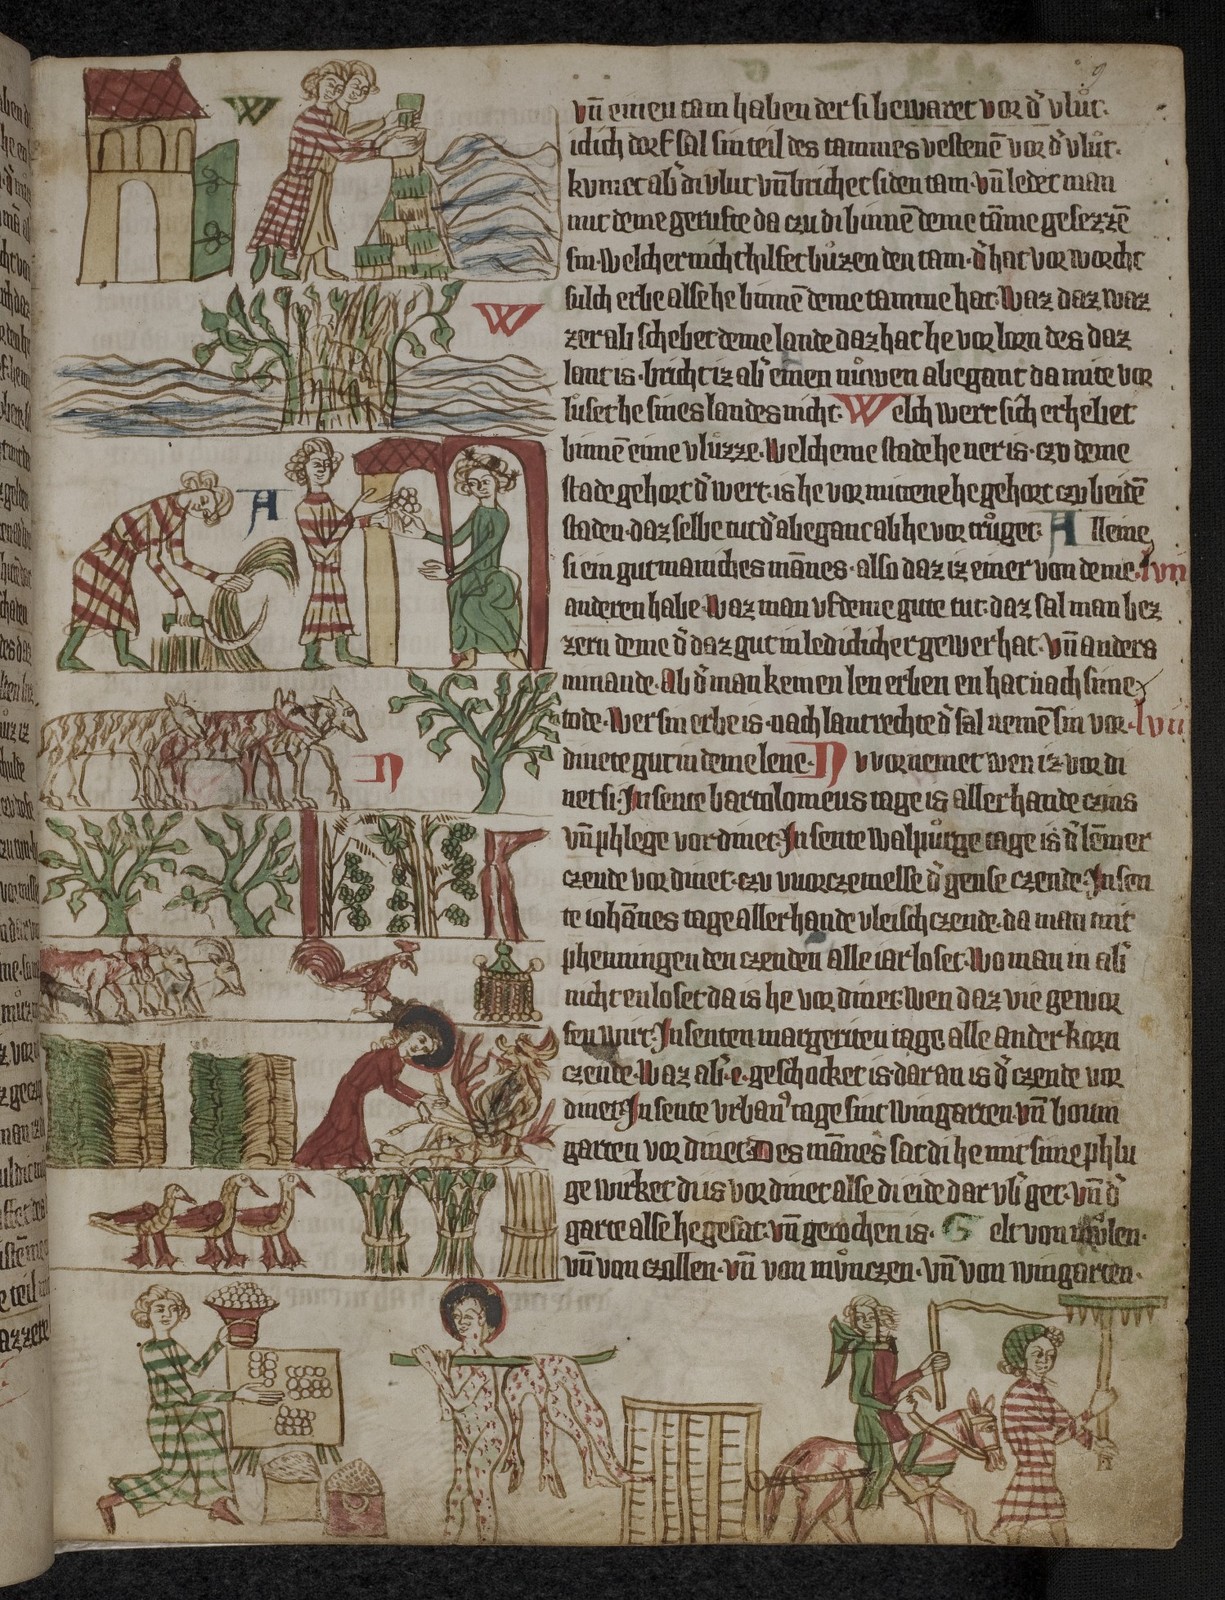 9
W
vn̄ einen tam haben der si bewaret vor d' vlůt.
idich dorf sal sin teil des tammes vestenē vor d' vlůt.
kvmet ab' di vlut vn̄ brichet si den tam. vn̄ ledet man
mit deme gerufte da czu di binnē deme tāme gesezzē
sin. Welcher nicht hilfet bůzen den tam. d' hat vor worcht
sulch erbe alse he binnē deme tamme hat. Waz daz waz
W
zer ab schebet deme lande daz hat he vor lorn des daz
lant is. bricht iz ab' einen nůwen abegant da mite vor
luset he sines landes nicht. Welch wert sich erhebet
binnē eime vlůzze. Welcheme stade he ner is. czv deme
stade gehort d' wert. is he vor mittene he gehort czv beidē
A
staden. daz selbe tut d' abegant ab he vor trůget. Alleine
si ein gut manches mānes. also daz iz einer von deme lvii
anderen habe. Waz man vf deme gute tut. daz sal man bez
zern deme d' daz gut in ledichicher gewer hat. vn̄ anders
nimande. Ab d' man kemen len erben en hat nach sime
tode. Wer sin erbe is. nach lantrechte d' sal nemē sin vor lviii
dinete gut in deme lene. Nv vornemet wen iz vor di
N
net si. In sente bartolomeus tage is aller hande czins
vn̄ phlege vor dinet. In sente Walpůrge tage is d' lēmer
czende vor dinet. czv wurczemesse d' gense czende. In sen
te iohānes tage aller hande vleisch czende. da man mit
phenningen den czenden alle iar loset. Wo man in ab'
nicht en loset da is he vor dinet wen daz vie gewor
fen wirt. In senten margeriten tage alle ander korn
czende. Waz ab'. e. geschocket is. dar an is d' czende vor
dinet. In sente vrban' tage sint wingarten. vn̄ boum
garten vor dinet. Des mānes sat di he mit sime phlu
ge wirket di is vor dinet alse di eide dar vb' get. vn̄ d'
garte alse he gesat. vn̄ gerochen is. Gelt von můlen.
vn̄ von czollen. vn̄ von můnczen. vn̄ von wingarten.